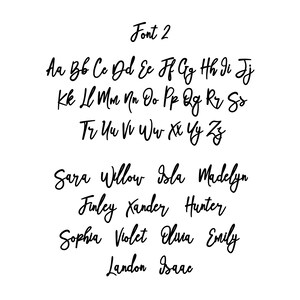 Font 2
Aa Bb Cc Dd Ee Ff Gg Hh Ii Jj
Kk Ll Mm Nn Oo Pp Qq Rr Ss
Tt Uu Vv Ww Xx Yy Zz
Sara Willow Isla Madelyn
Finley Xander Hunter
Sophia Violet Olivia Emily
Landon Isaac